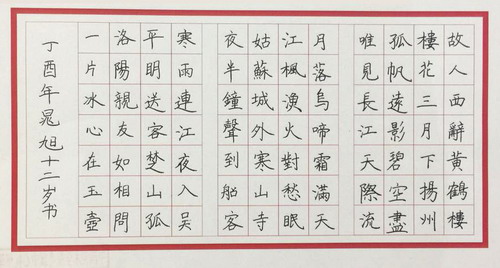 故人西辭黃鶴樓
樓花三月下揚州
孤帆遠影碧空盡
唯見長江天際流
月落烏啼霜滿天
江楓漁火對愁眠
姑蘇城外寒山寺
夜半鐘聲到船客
寒雨連江夜入吳
平明送客楚山孤
洛陽親友如相問
一片冰心在玉壺
丁酉年晁旭十二岁书